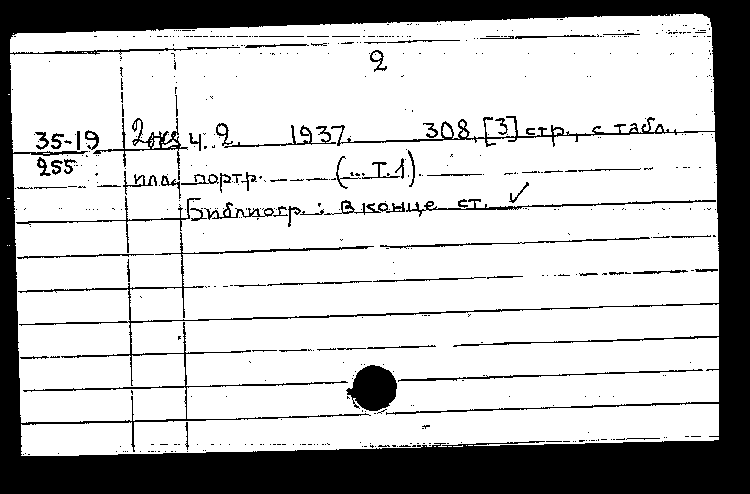 2
35-19 2 экз ч. 2. 1937. 308, [3] стр., с табл.,
255
илл. портр. (... Т. 1).
Библиогр.: в конце ст. ✓